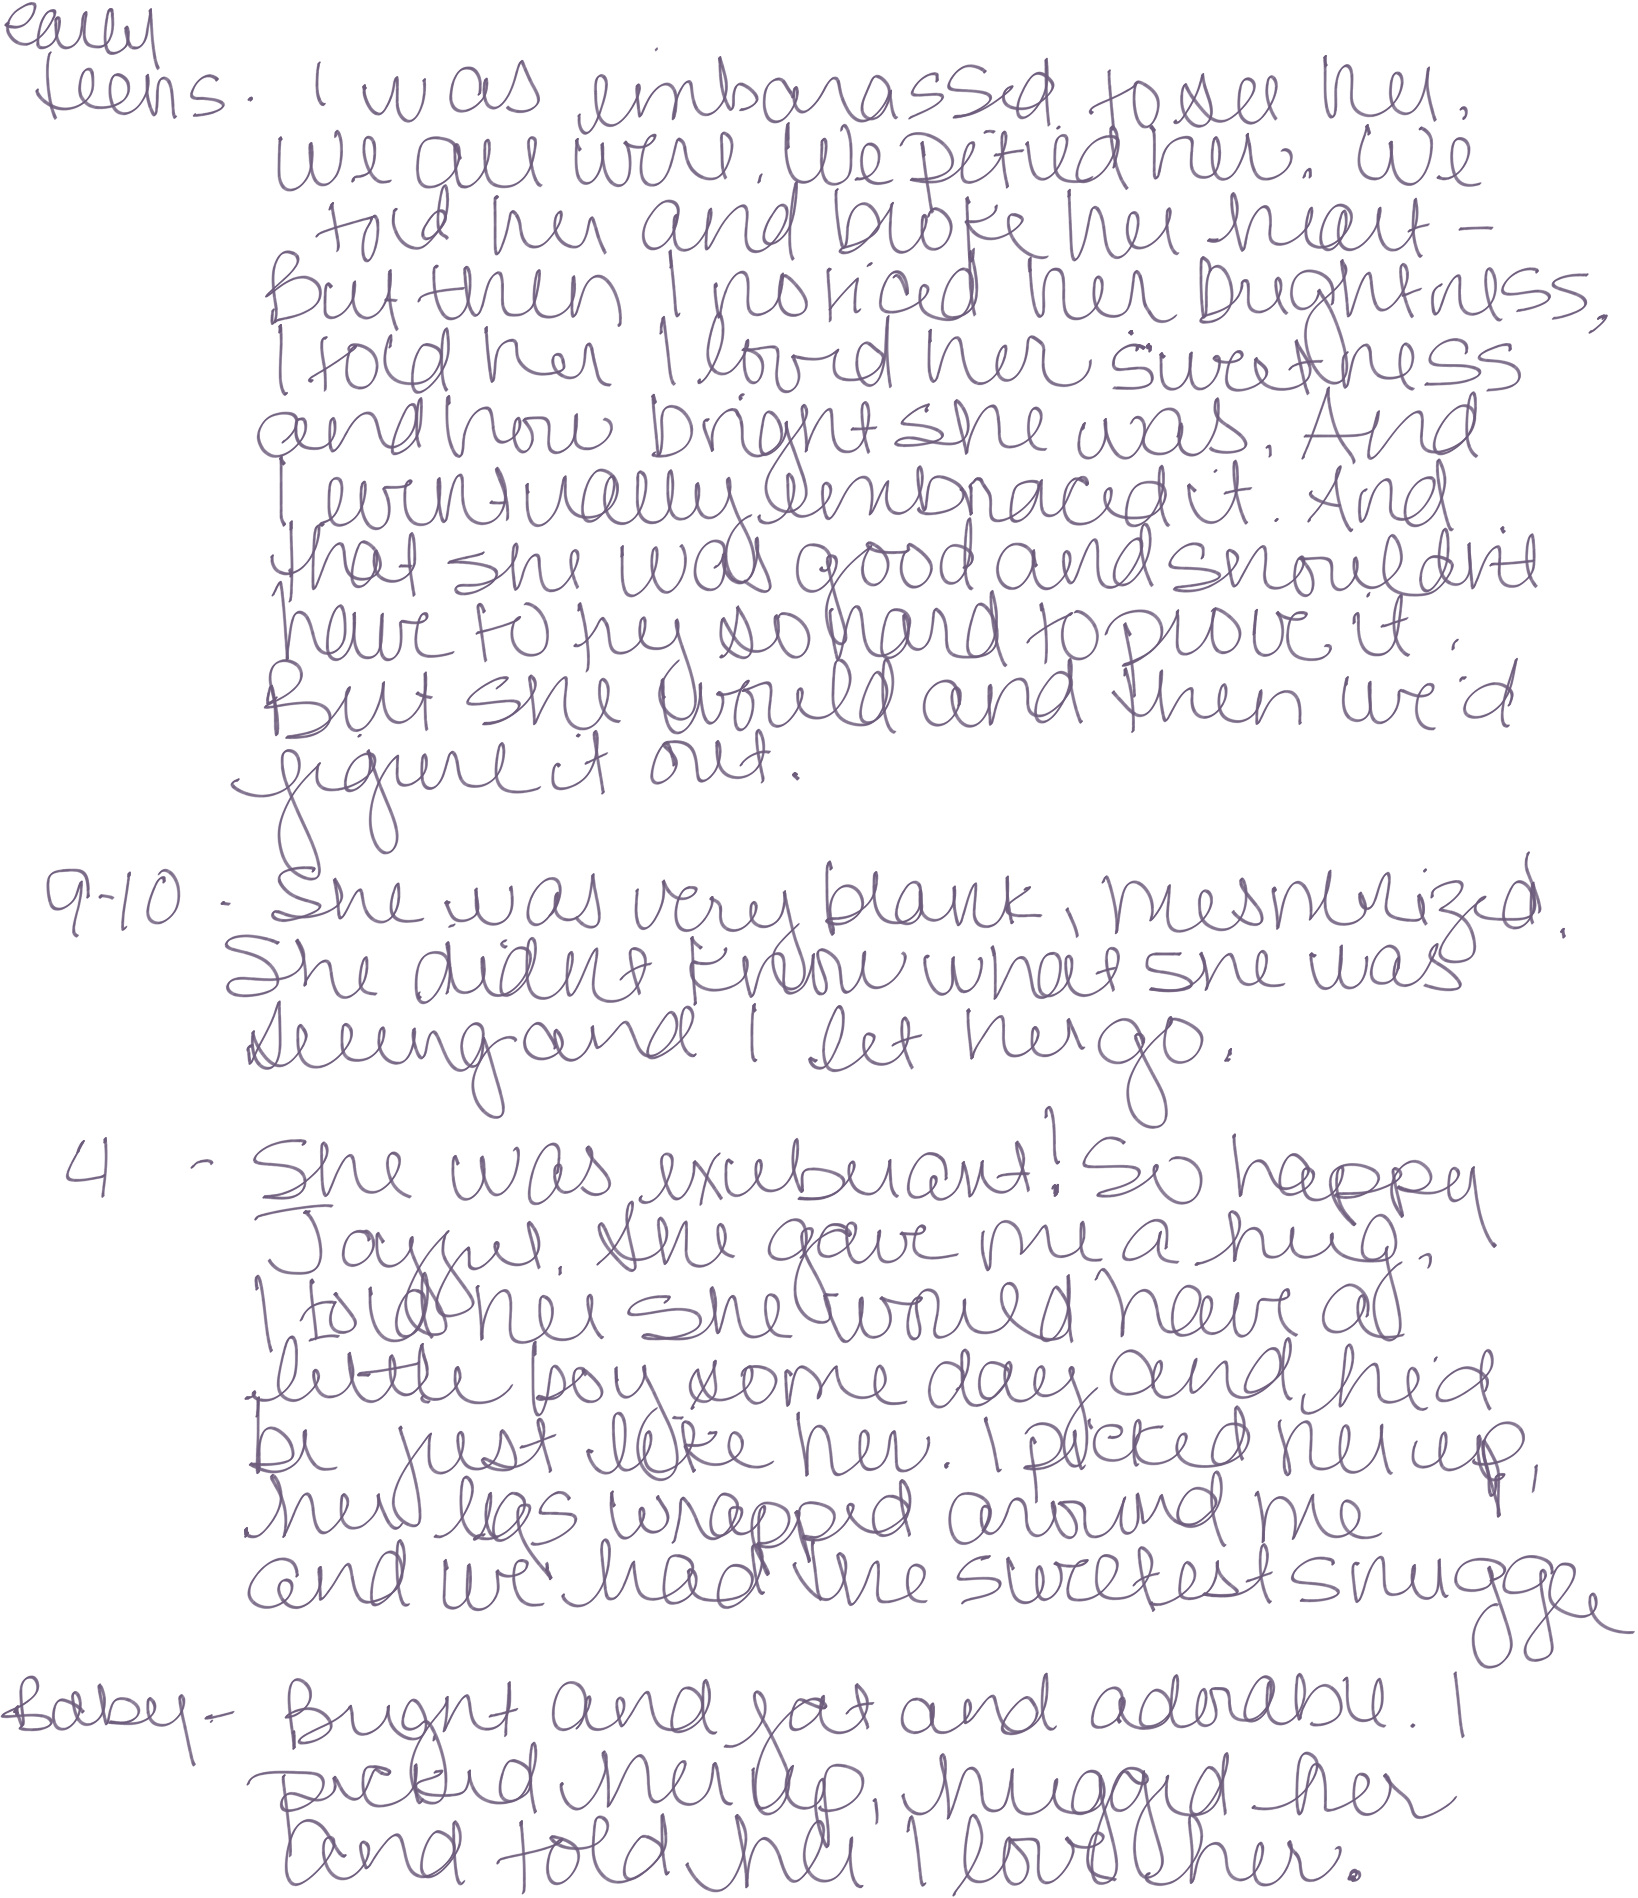 early
teens. I was embarassed to see her.
We all were. We petied her. We
told her and broke her heart -
But then I noticed her brightness,
I told her I loved her sweetness
and how bright she was. And
I eventually embraced it. And
that she was good and shouldn't
have to try so hard to prove it.
But she would and then we'd
figure it out.
9-10 - She was very blank, mesmerized.
She didn't know what she was
seeing and I let her go.
4 - She was exuberant! So happy
Joyful. She gave me a hug,
I told her she would have a
little boy some day and he'd
be just like her. I picked her up,
her legs wrapped around me
and we had the sweetest snuggle
Baby - Bright and fat and adorable. I
picked her up, hugged her
and told her I love her.